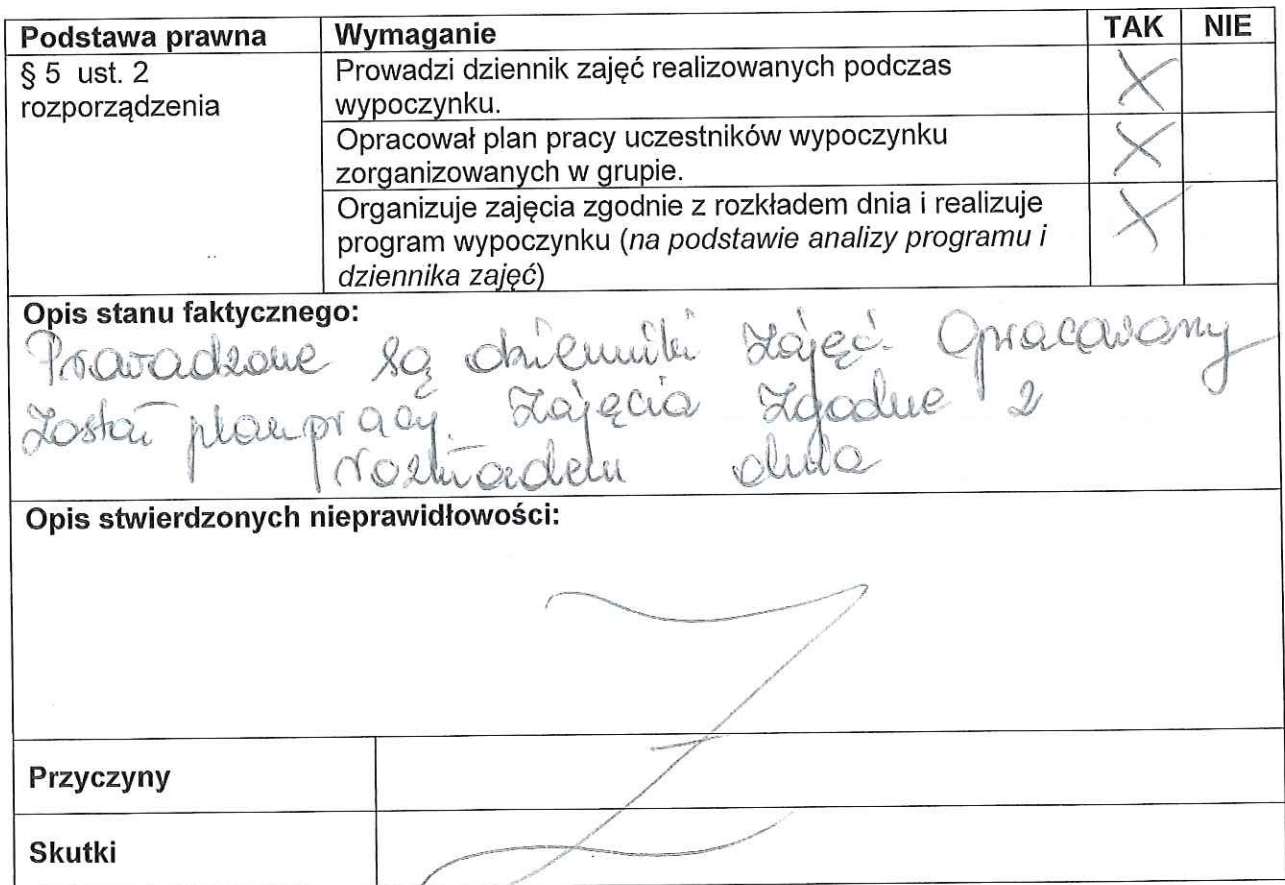 Podstawa prawna Wymaganie TAK NIE
§ 5 ust. 2
rozporządzenia
Prowadzi dziennik zajęć realizowanych podczas
wypoczynku. X
Opracował plan pracy uczestników wypoczynku
zorganizowanych w grupie. X
Organizuje zajęcia zgodnie z rozkładem dnia i realizuje
program wypoczynku (na podstawie analizy programu i
dziennika zajęć) X
Opis stanu faktycznego:
Prowadzone są dzienniki zajęć. Opracowany
został plan pracy. Zajęcia zgodne z
rozkładem dnia
Opis stwierdzonych nieprawidłowości:
Przyczyny
Skutki